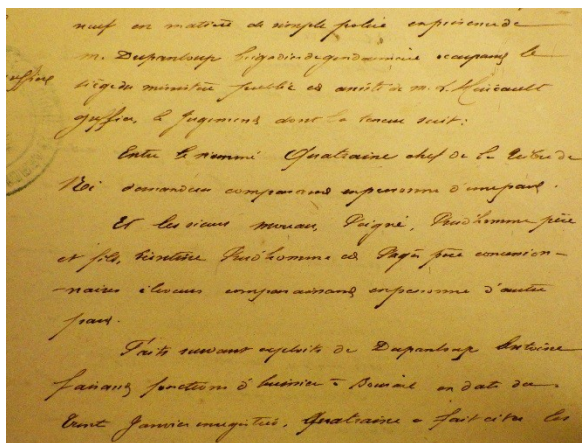 neuf en matière de simple police en présence de
m. Dupanloup brigadier de gendarmerie occupant le
siège du ministère public et assisté de m. L. Huricault
greffier, le Jugement dont la teneur suit:
Entre le nommé Quatraine chef de la tribu de
Ni demandeur comparant en personne d'une part.
Et les sieurs moreau, Poigné, Prud'homme père
et fils, Prud'homme et Pagès père concession-
naires éleveurs comparaissant en personne d'autre
part.
Faits suivant exploits de Dupanloup Antoine
faisant fonctions d'huissier à Bourail en date du
trent Janvier enregistrés, Quatraine a fait citer les